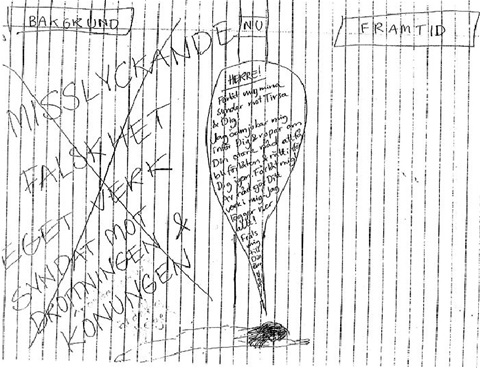 BAKGRUND
NU
FRAMTID
MISSLYCKANDE
FALSKHET
EGET VERK
SYNDAT MOT
DROTTNINGEN &
KONUNGEN
HERRE!
Förlåt mig mina
synder mot Tirsa
& Dig
Jag ödmjukar mig
inför Dig & ropar om
Din starka nåd att få
bli förlåten &
Dig igen. Förlåt mig
Av nåd gör Ditt
verk i mig. Jag
lägger
allt! ner
Fräls
mig
till
Din